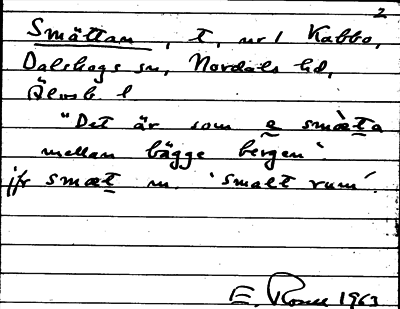 2
Smättan, t, nr 1 Kabbo,
Dalskogs sn, Nordals hd,
Älvsb. l
"Det är som e smæ̀ta
mellan bägge bergen".
jfr smæt m. 'smalt rum'.
E. 1963